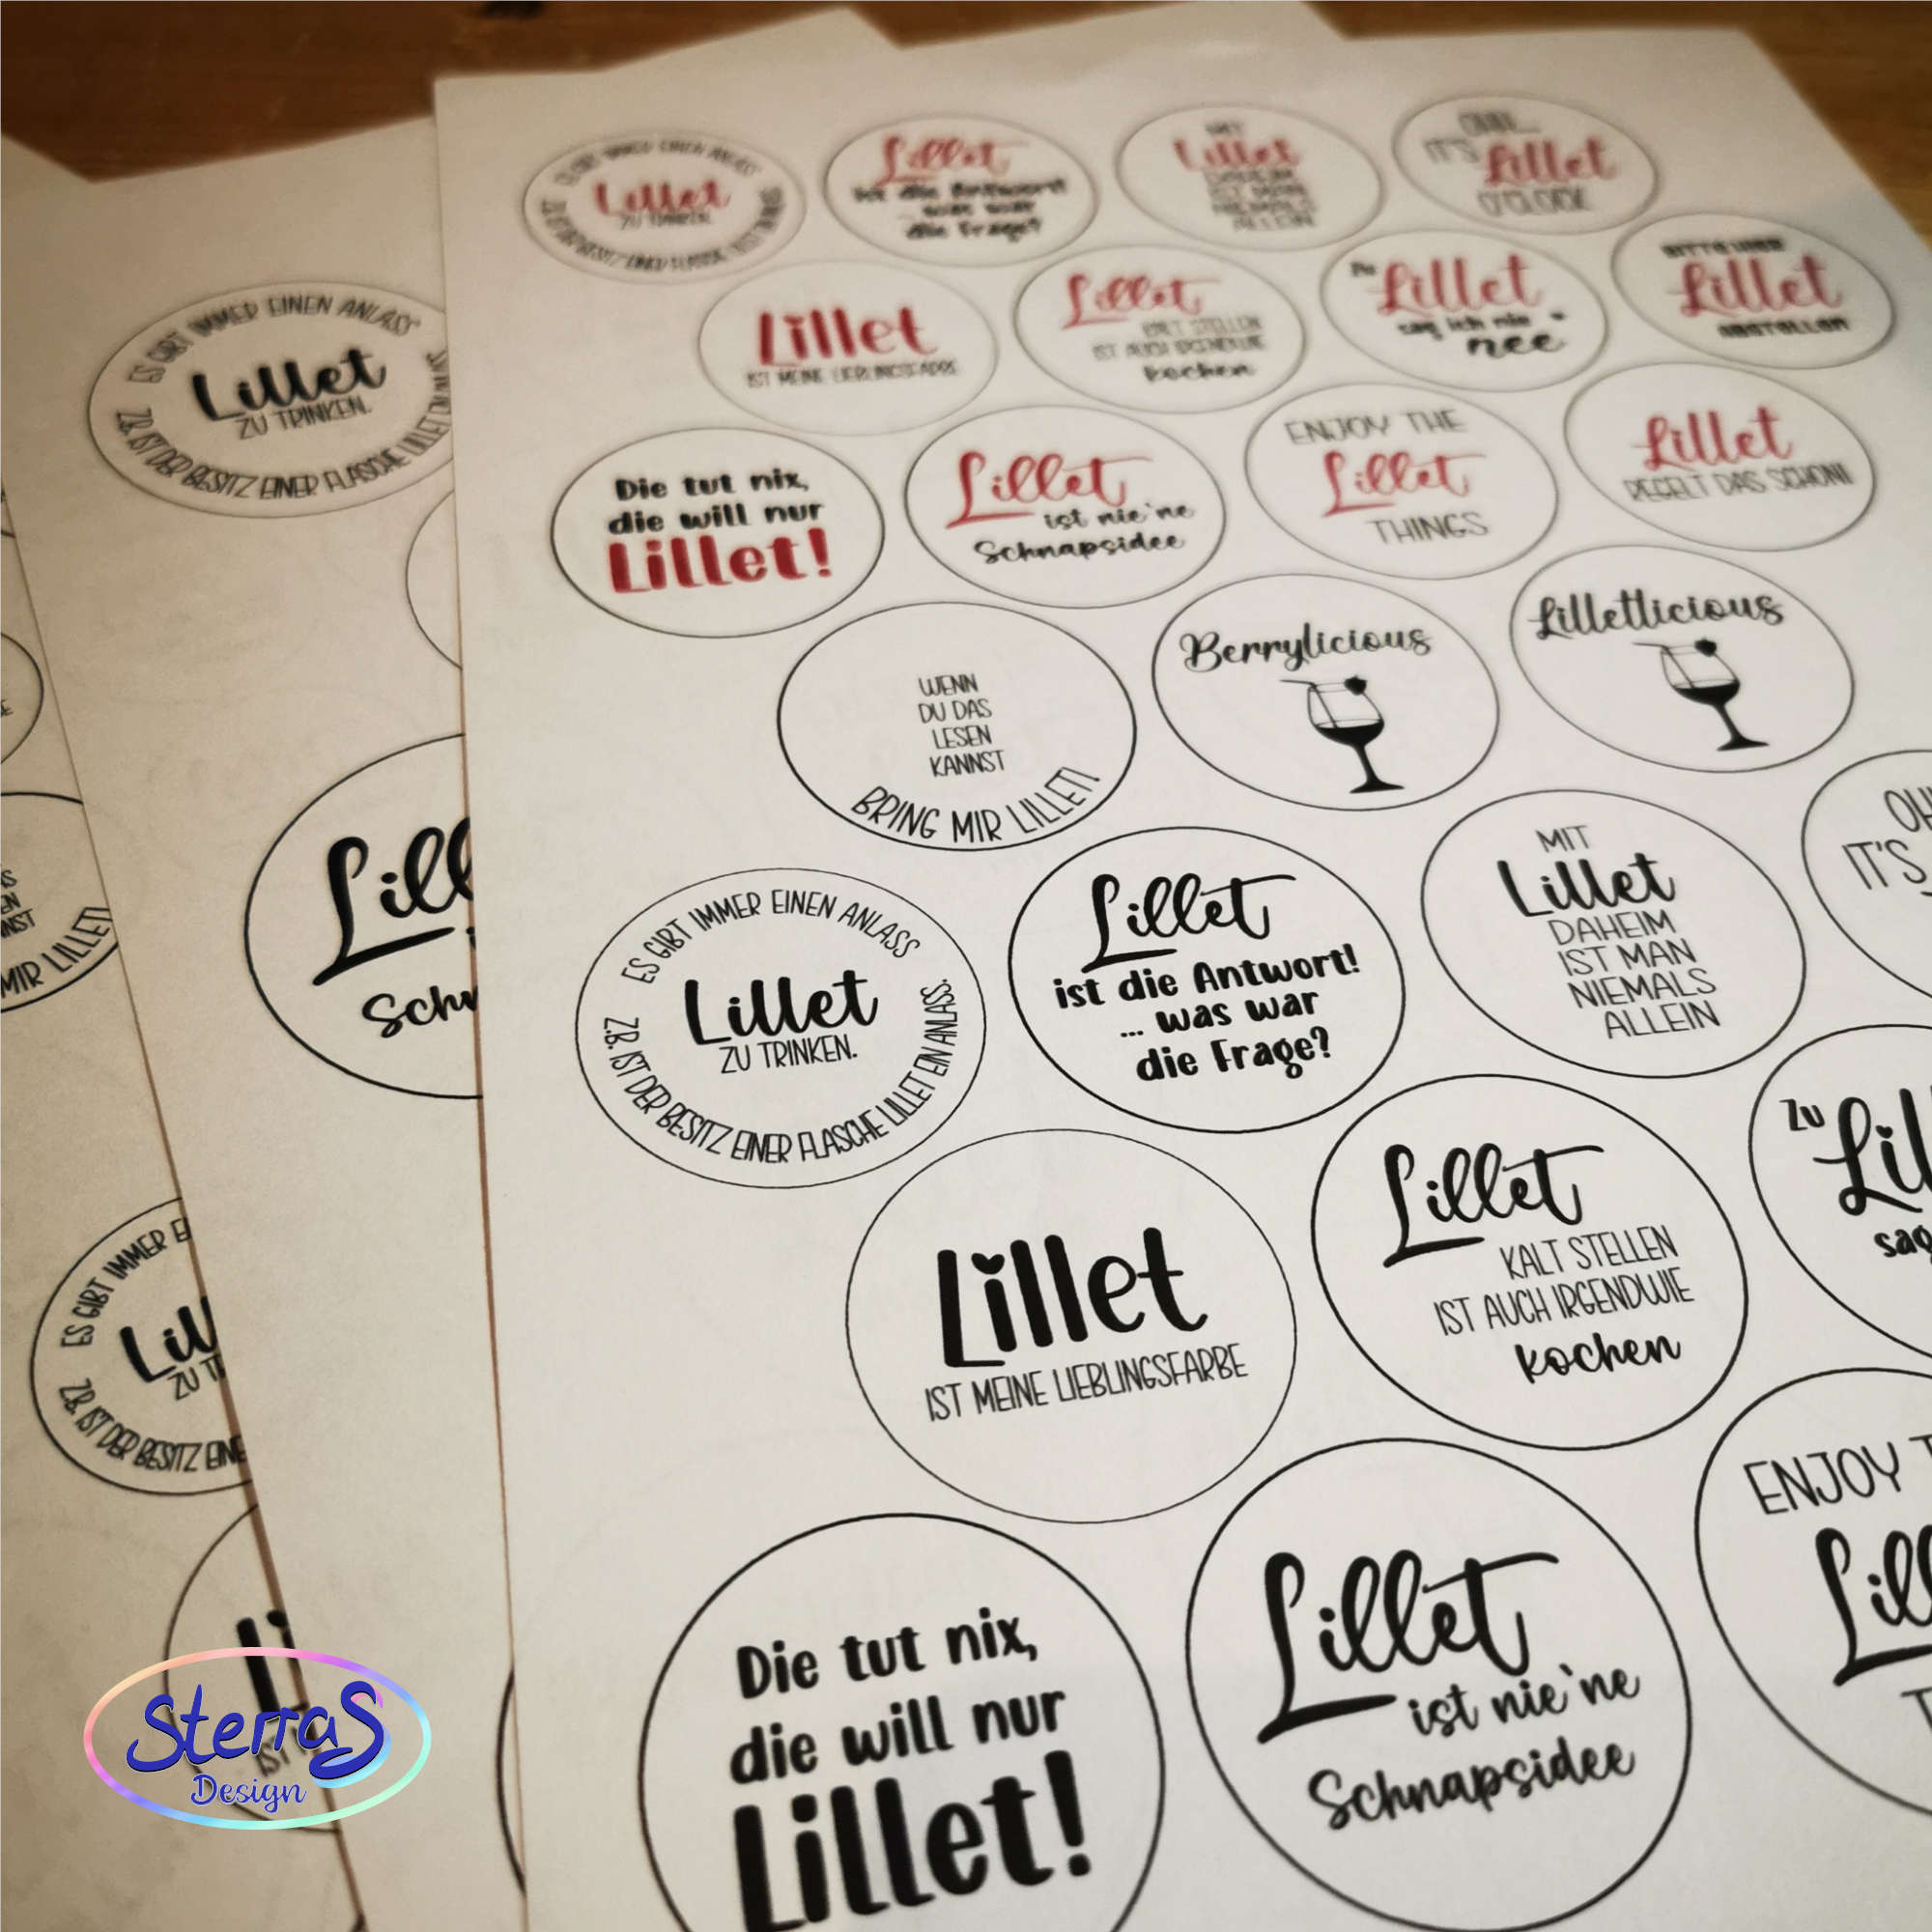 ES GIBT IMMER EINEN ANLASS
Lillet
ZU TRINKEN.
Lillet
ist die Antwort!
... was war
die Frage?
Lillet
OHH...
IT'S Lillet
O'CLOCK
Lillet
IST MEINE LIEBLINGSFARBE
Lillet
KALT STELLEN
IST AUCH IRGENDWIE
kochen
Zu Lillet
sag ich nie
nee
Lillet
ABSTELLEN
Die tut nix,
die will nur
Lillet!
Lillet
ist nie`ne
Schnapsidee
ENJOY THE
Lillet
THINGS
Lillet
REGELT DAS SCHON!
WENN
DU DAS
LESEN
KANNST
BRING MIR LILLET!
Berrylicious
Lilletlicious
ES GIBT IMMER EINEN ANLASS
Lillet
ZU TRINKEN.
Z.B. IST DER BESITZ EINER FLASCHE LILLET EIN ANLASS.
Lillet
ist die Antwort!
... was war
die Frage?
MIT
Lillet
DAHEIM
IST MAN
NIEMALS
ALLEIN
OH
IT'S
Lillet
IST MEINE LIEBLINGSFARBE
Lillet
KALT STELLEN
IST AUCH IRGENDWIE
kochen
Zu
Lil
sag
Die tut nix,
die will nur
Lillet!
Lillet
ist nie`ne
Schnapsidee
ENJOY T
Lill
T
ES GIBT IMMER EINEN ANLASS
Lillet
ZU TRINKEN.
Z.B. IST DER BESITZ EINER FLASCHE LILLET EIN
Lill
Schn
NST
MIR LILLET!
ES GIBT IMMER EI
Lill
ZU TR
Z.B. IST DER BESITZ EINE
Li
IST
SterraS
Design